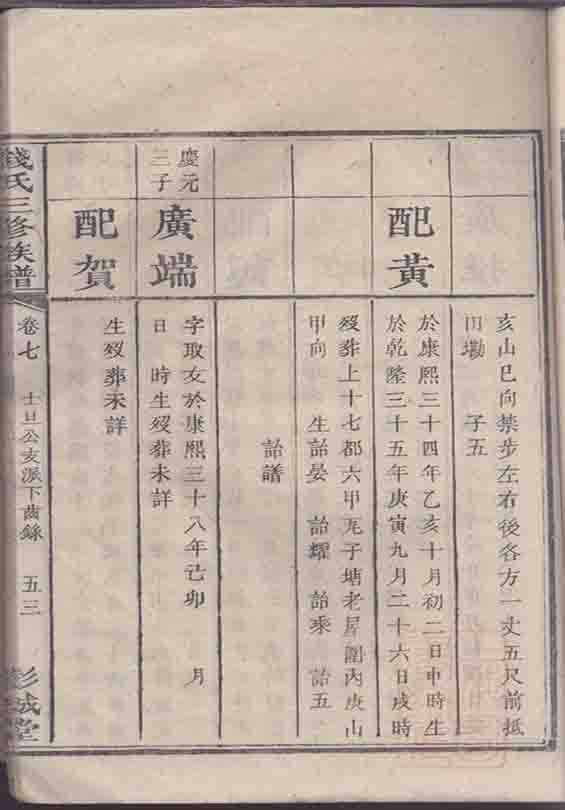 亥山巳向禁步左右後各方一丈五尺前抵
田塝　子五
配黃
於康熙三十四年乙亥十月初二日申時生
於乾隆三十五年庚寅九月二十六日戌時
歿葬上十七都六甲瓦子塘老屋圍內庚山
甲向　生詒晏　詒耀　詒乘　詒五
詒譜
慶元
三子
廣端
字取友於康熙三十八年己卯　月
日　時生歿葬未詳
配賀
生歿葬未詳
錢氏三修族譜
卷七
士旦公支派下齒錄
五三
彭城堂